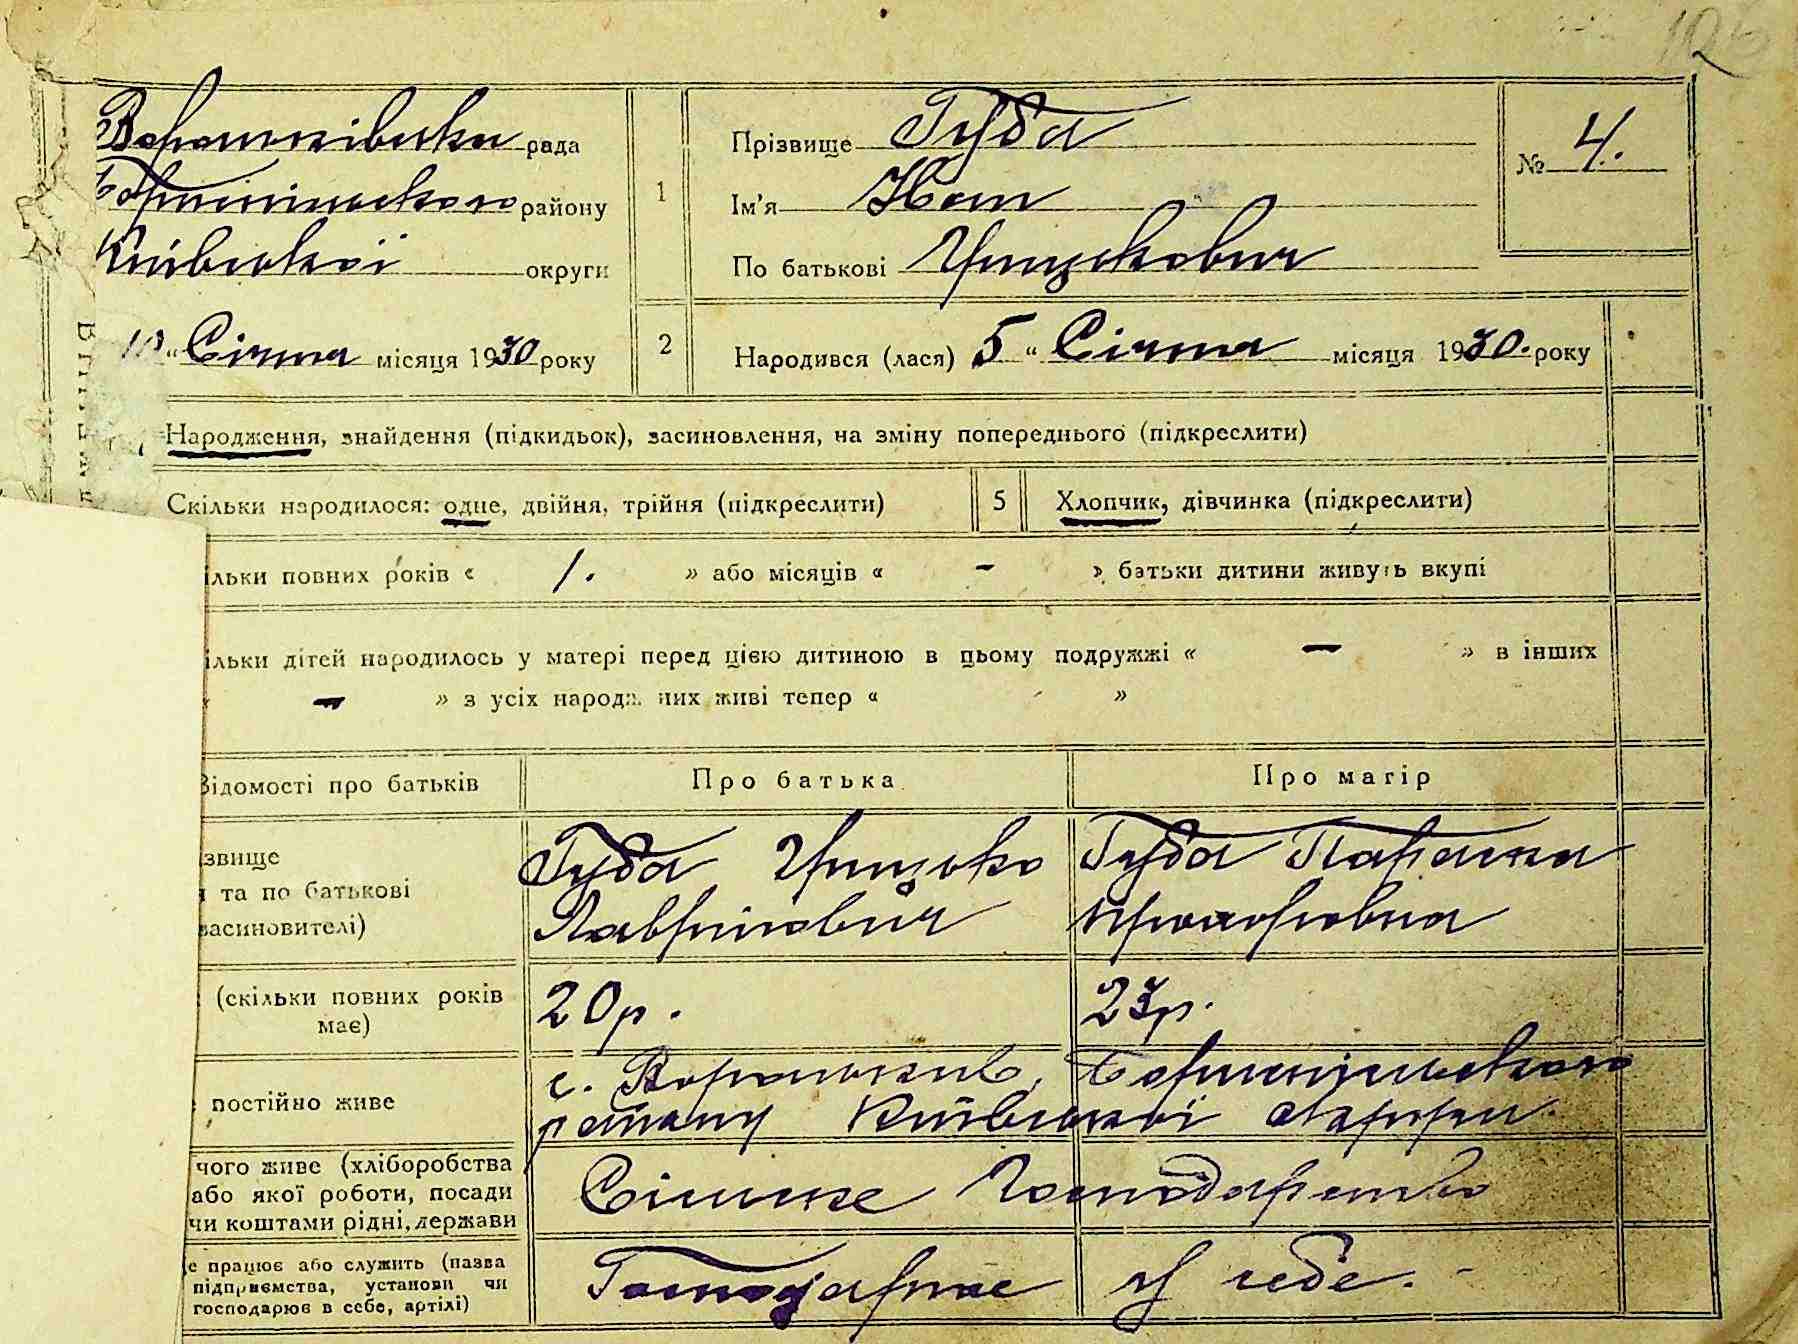 126
Вороньківська рада
Бориспільського району
Київської округи
10 " Січня місяця 1930 року
1
Прізвище Губа
Ім'я Іван
По батькові Грицькович
№ 4.
2
Народився (лася) 5 " Січня місяця 1930. року
Народження, знайдення (підкидьок), засиновлення, на зміну попереднього (підкреслити)
Скільки народилося: одне, двійня, трійня (підкреслити)
5
Хлопчик, дівчинка (підкреслити)
ільки повних років « 1. » або місяців « - » батьки дитини живуть вкупі
ільки дітей народилось у матері перед цією дитиною в цьому подружжі « — » в інших
« — » з усіх народж них живі тепер « »
Відомості про батьків
Про батька
Про матір
звище
я та по батькові
засиновителі)
Губа Грицько
Лаврінович
Губа Параска
Прохоровна
(скільки повних років
має)
20 р.
23 р.
постійно живе
с. Вороньків, Бориспільського
району Київської округи.
чого живе (хліборобства
або якої роботи, посади
чи коштами рідні, держави
Сільське Господарство
е працює або служить (назва
підприємства, установи чи
господарює в себе, артілі)
Господарює у себе.